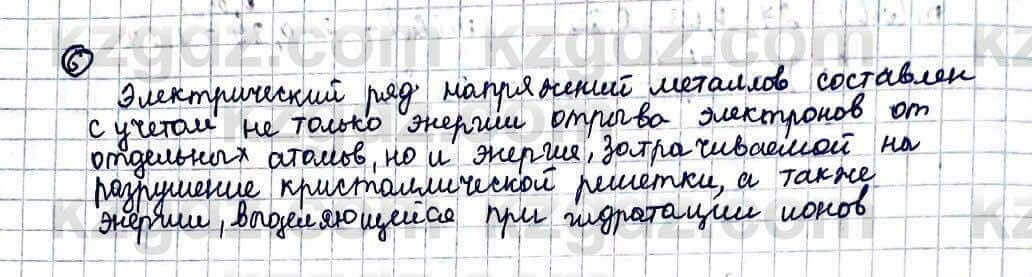 6
Электрический ряд напряжений металлов составлен
с учетом не только энергии отрыва электронов от
отдельных атомов, но и энергия, затрачиваемой на
разрушение кристаллической решетки, а также
энергии, выделяющейся при гидратации ионов
kzgdz.com